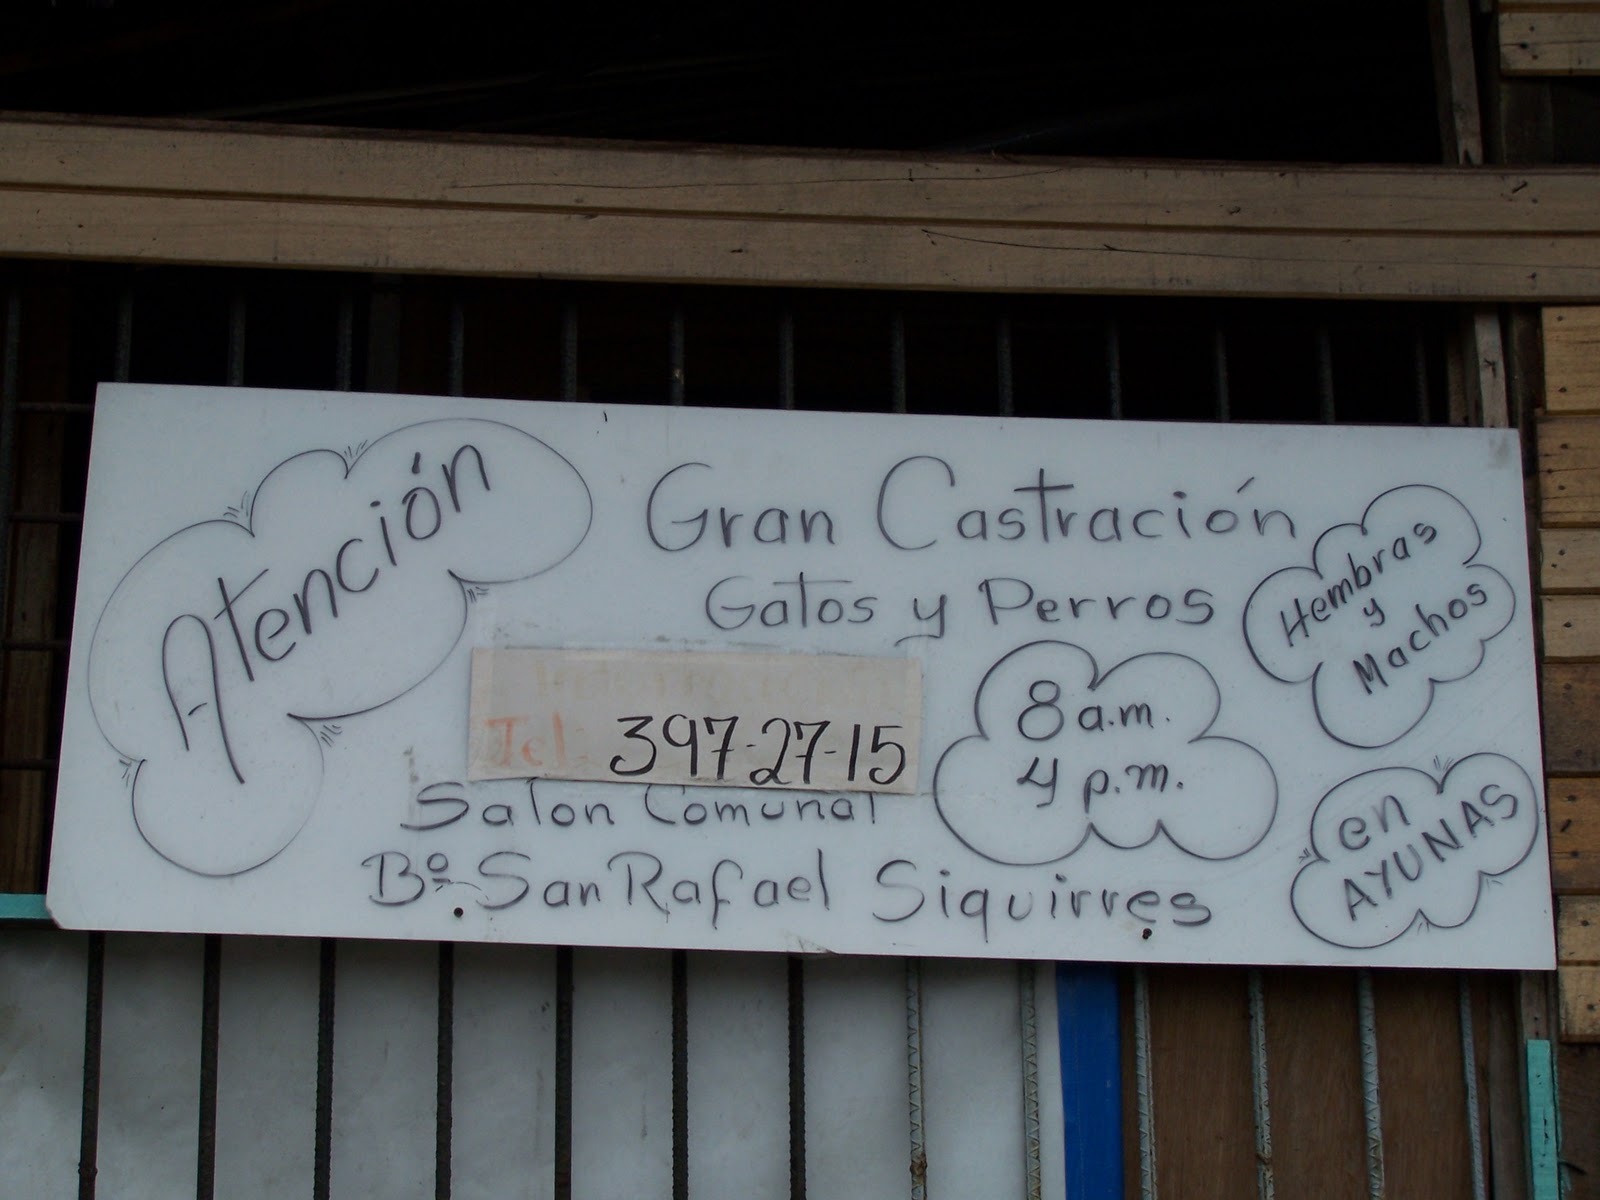 Atención
Gran Castración
Gatos y Perros
Hembras
y
Machos
Tel: 397-27-15
8 a.m.
4 p.m.
Salon Comunal
Bº San Rafael Siquirres
en
AYUNAS